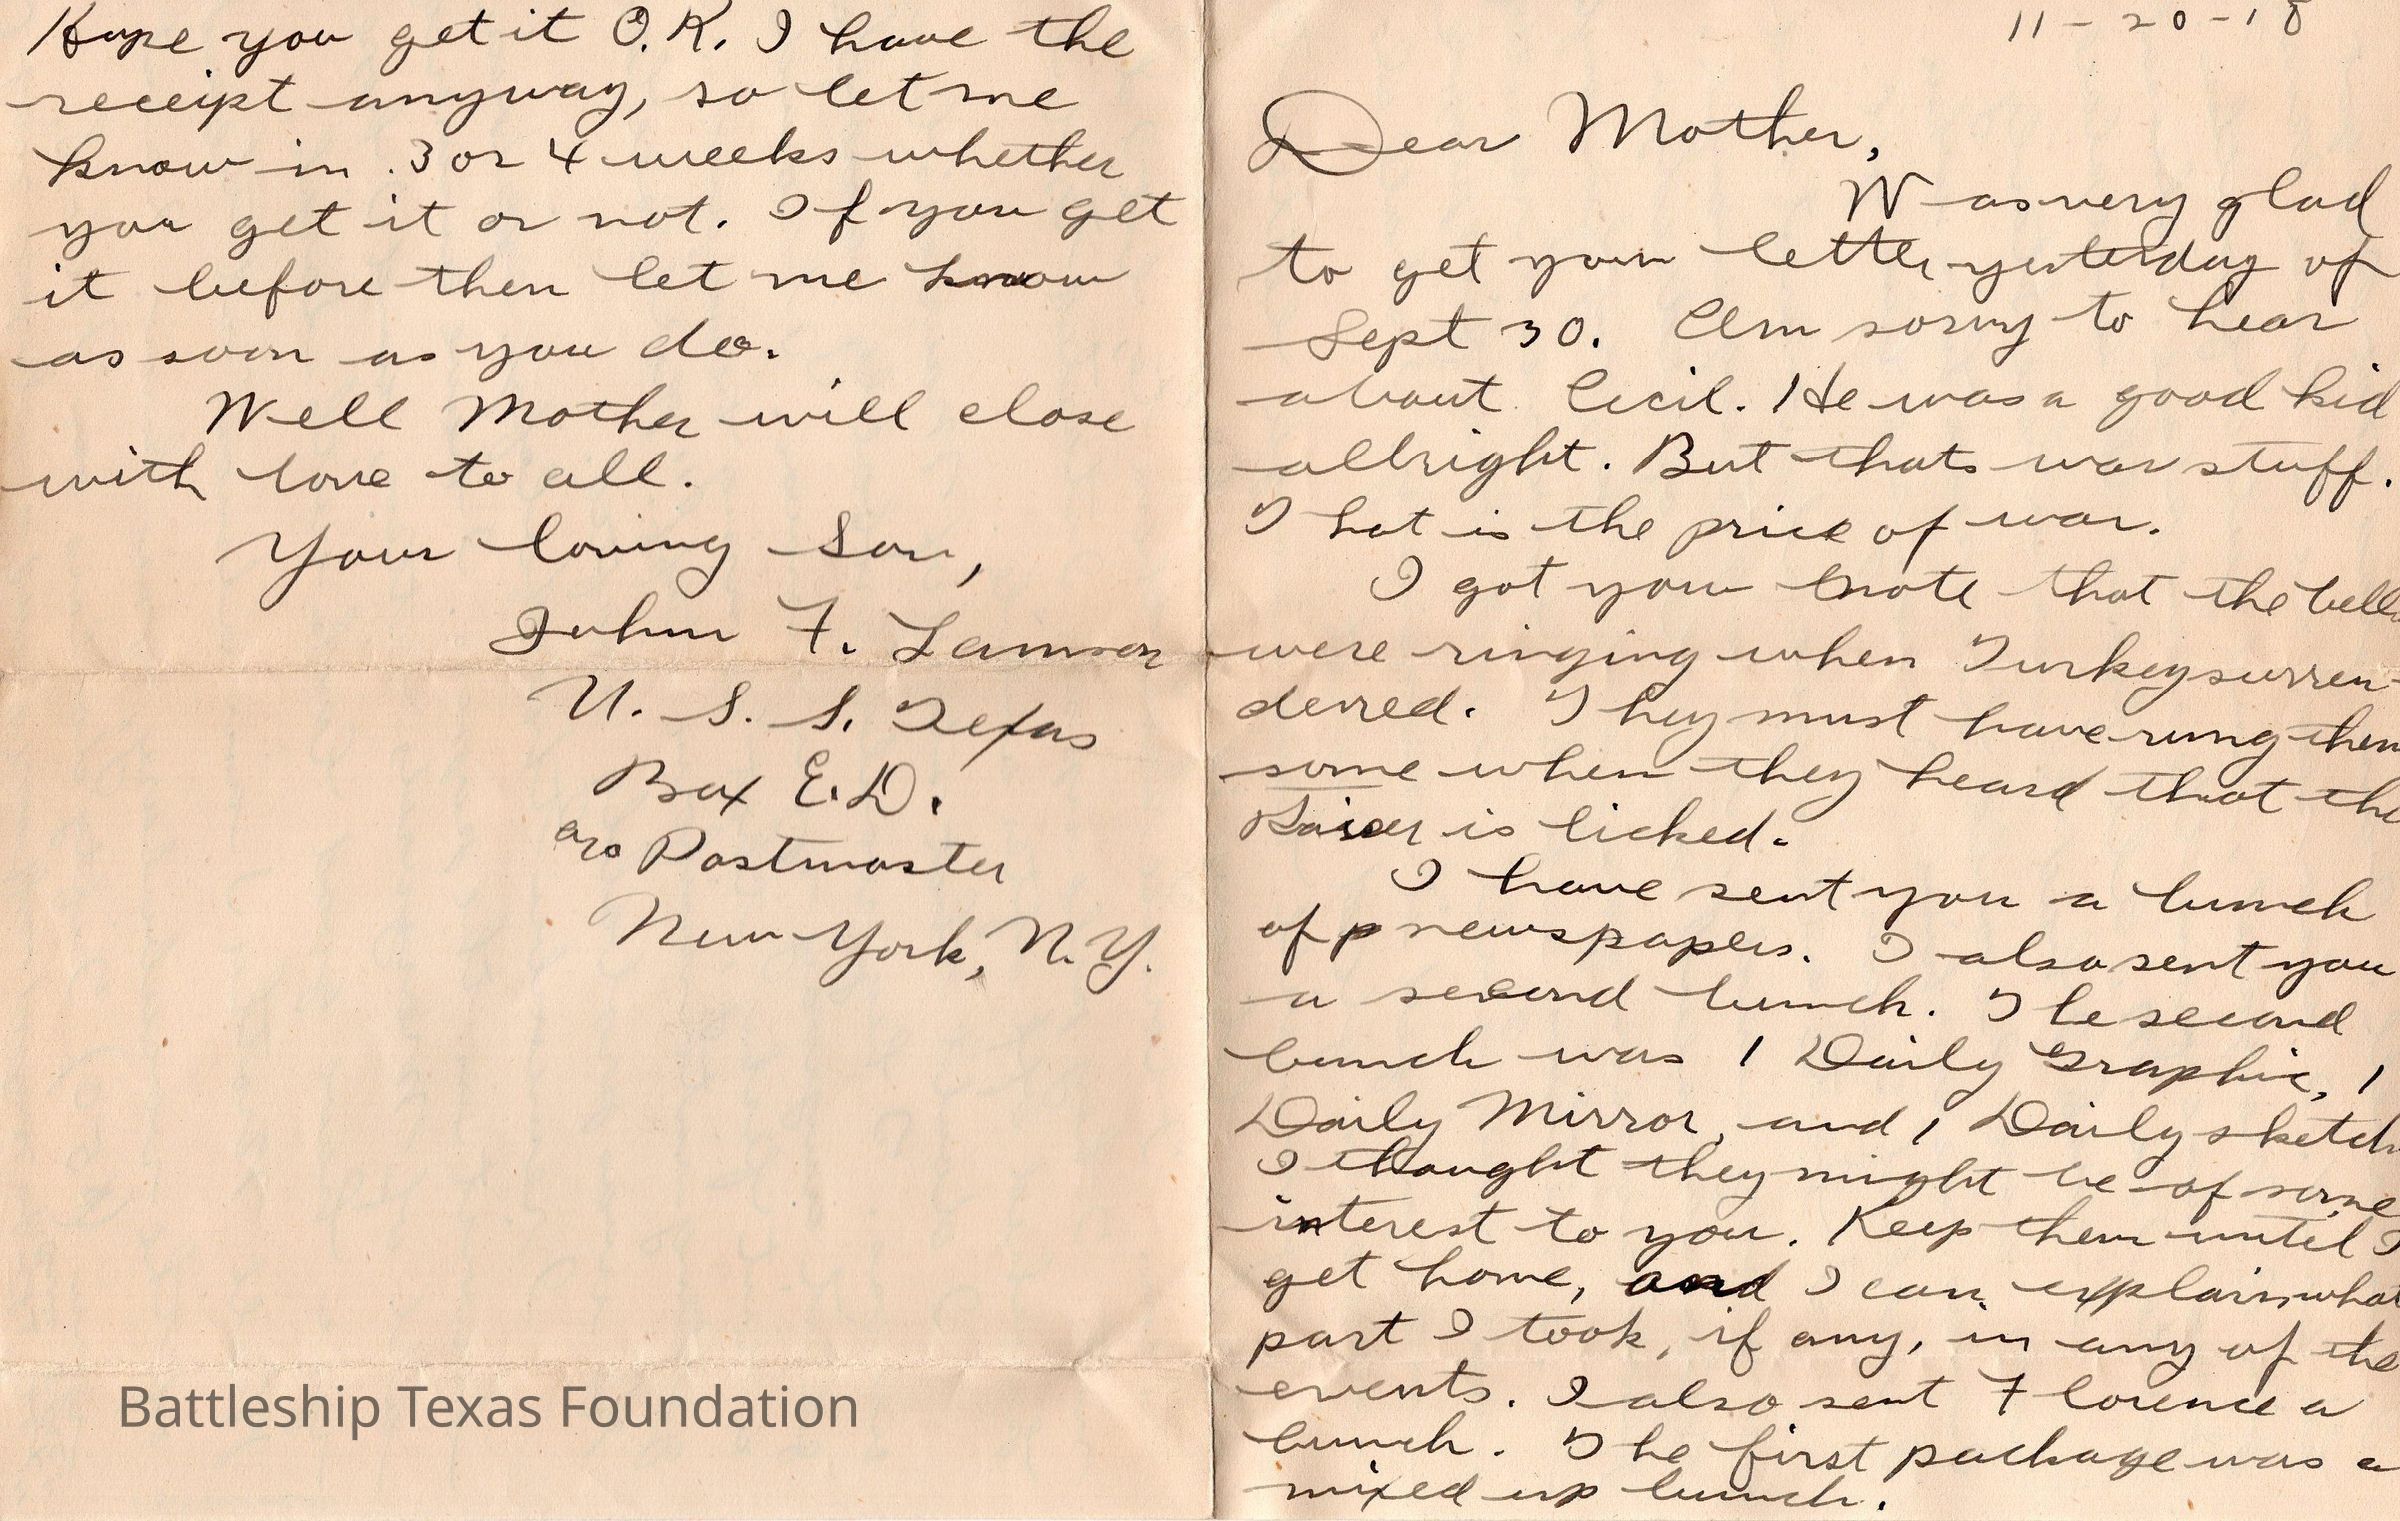 Hope you get it O.K. I have the
receipt anyway, so let me
know in 3 or 4 weeks whether
you get it or not. If you get
it before then let me know
as soon as you do.
Well Mother will close
with love to all.
Your loving Son,
John F. Lamson
U. S. S. Texas
Box E.D.
c/o Postmaster
New York, N.Y.
Battleship Texas Foundation
11-20-18
Dear Mother,
Was very glad
to get your letter yesterday of
Sept 30. Am sorry to hear
about Cecil. He was a good kid
allright. But thats war stuff.
That is the price of war.
I got your note that the bells
were ringing when Turkey surren-
dered. They must have rung them
some when they heard that the
Kaiser is licked.
I have sent you a bunch
of newspapers. I also sent you
a second bunch. The second
bunch was 1 Daily Graphic, 1
Daily Mirror, and 1 Daily sketch
I thought they might be of some
interest to you. Keep them until I
get home, and I can explain what
part I took, if any, in any of the
events. I also sent Florence a
bunch. The first package was a
mixed up bunch.